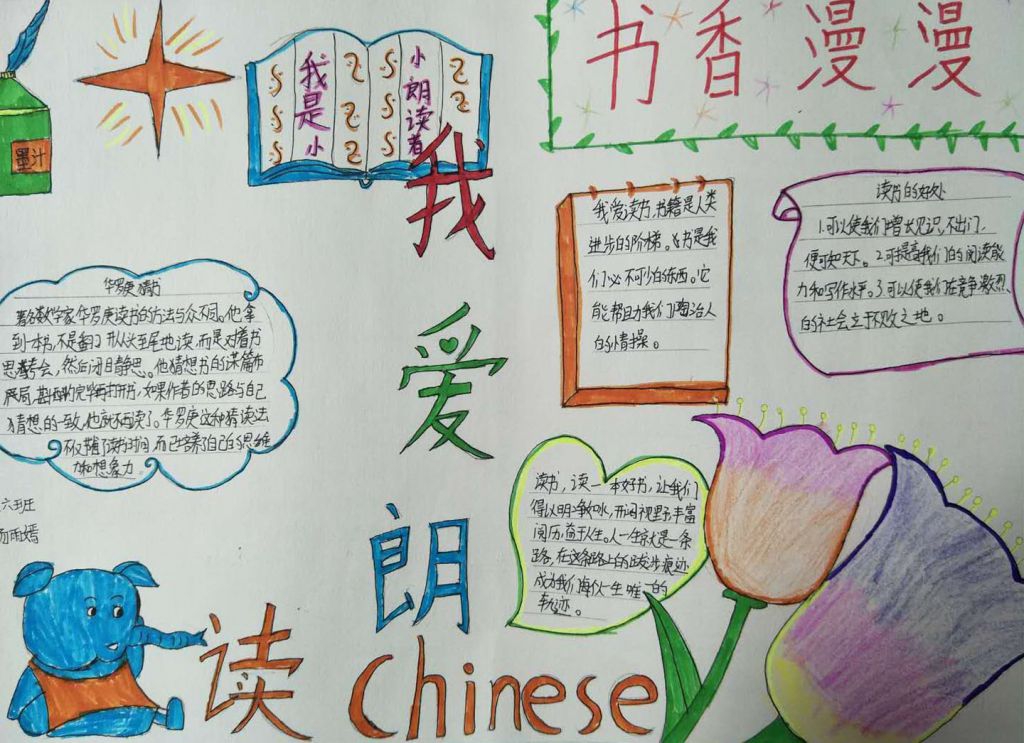 书香漫漫
墨汁
我是小
小朗读者
我爱朗读
Chinese
华罗庚猜书
著名数学家华罗庚读书的方法与众不同。他拿
到一本书,不是翻开从头至尾地读,而是对着书
思考一会,然后闭目静思。他猜想书的谋篇布
局,斟酌完毕再打开书,如果作者的思路与自己
猜想的一致,他就不再读了。华罗庚这种猜读法
不仅节省了读书时间,而且培养了自己的思维
力和想象力
六班
雨嫣
我爱读书,书籍是人类
进步的阶梯。书是我
们必不可少的东西。它
能帮助我们陶冶人
的情操。
读书的好处
1.可以使我们增长见识,不出门,
便可知天下。2.可提高我们的阅读能
力和写作水平。3.可以使我们在竞争激烈
的社会立于不败之地。
读书,读一本好书,让我们
得以明净如水,开阔视野,丰富
阅历,益于人生。人一生就是一条
路,在这条路上的跋涉痕迹
成为我们每个一生唯一的
轨迹。